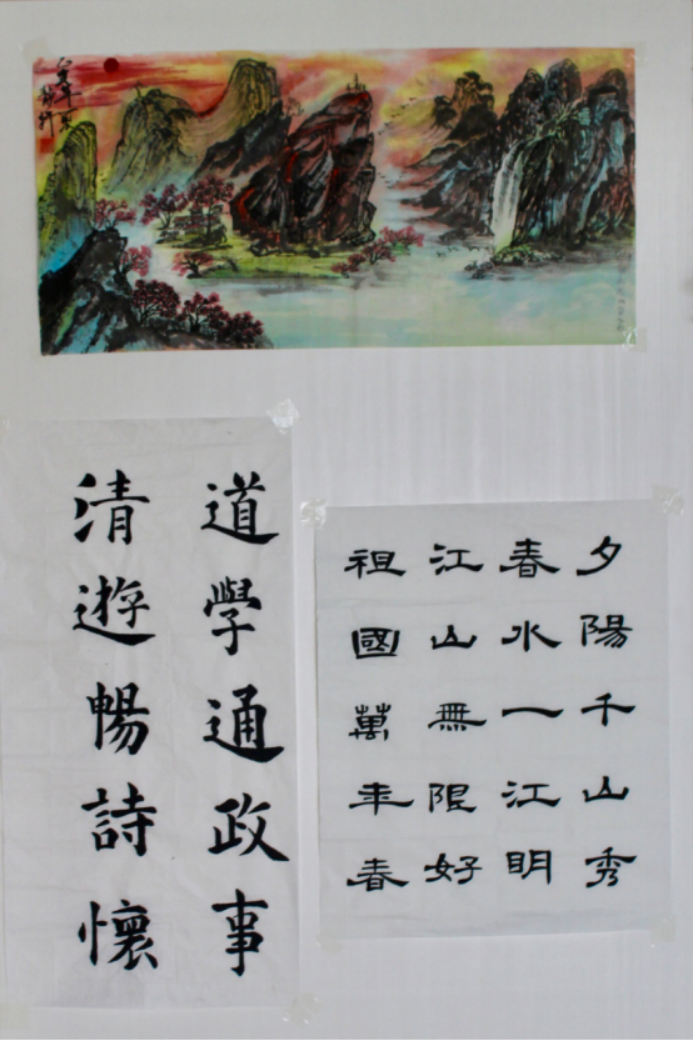 道學通政事
清遊暢詩懷
夕陽千山秀
春水一江明
江山無限好
祖國萬年春